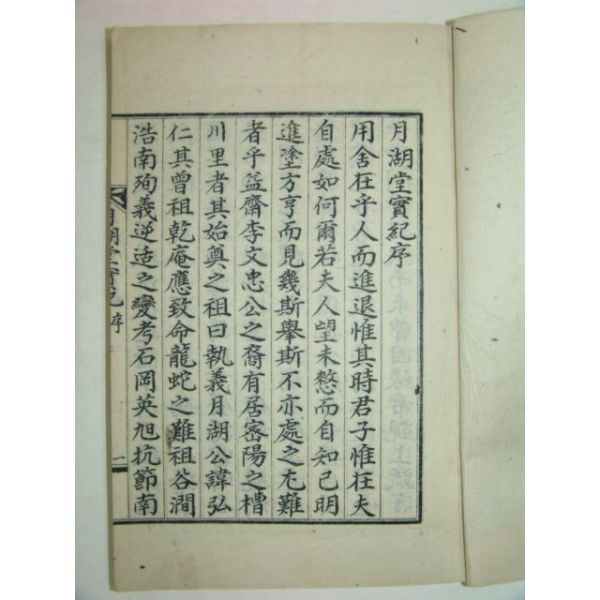 月湖堂實紀序
用舍在乎人而進退惟其時君子惟在夫
自處如何爾若夫人望未憖而自知已明
進塗方亨而見幾斯舉斯不亦處之尤難
者乎益齋李文忠公之裔有居密陽之槽
川里者其始奠之祖曰執義月湖公諱弘
仁其曾祖乾庵應致命龍蛇之難祖谷澗
浩南殉義逆适之變考石岡英旭抗節南
月湖堂實紀 序
一